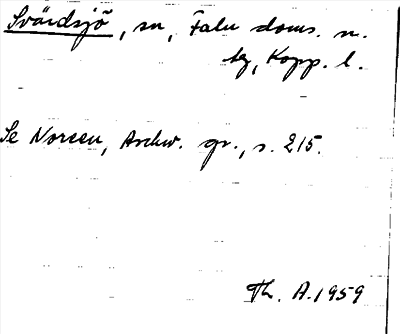 Svärdsjö, sn, Falu doms. n.
tg, Kopp. l.
Se Noreen, Aschw. gr., s. 215.
Th. A. 1959